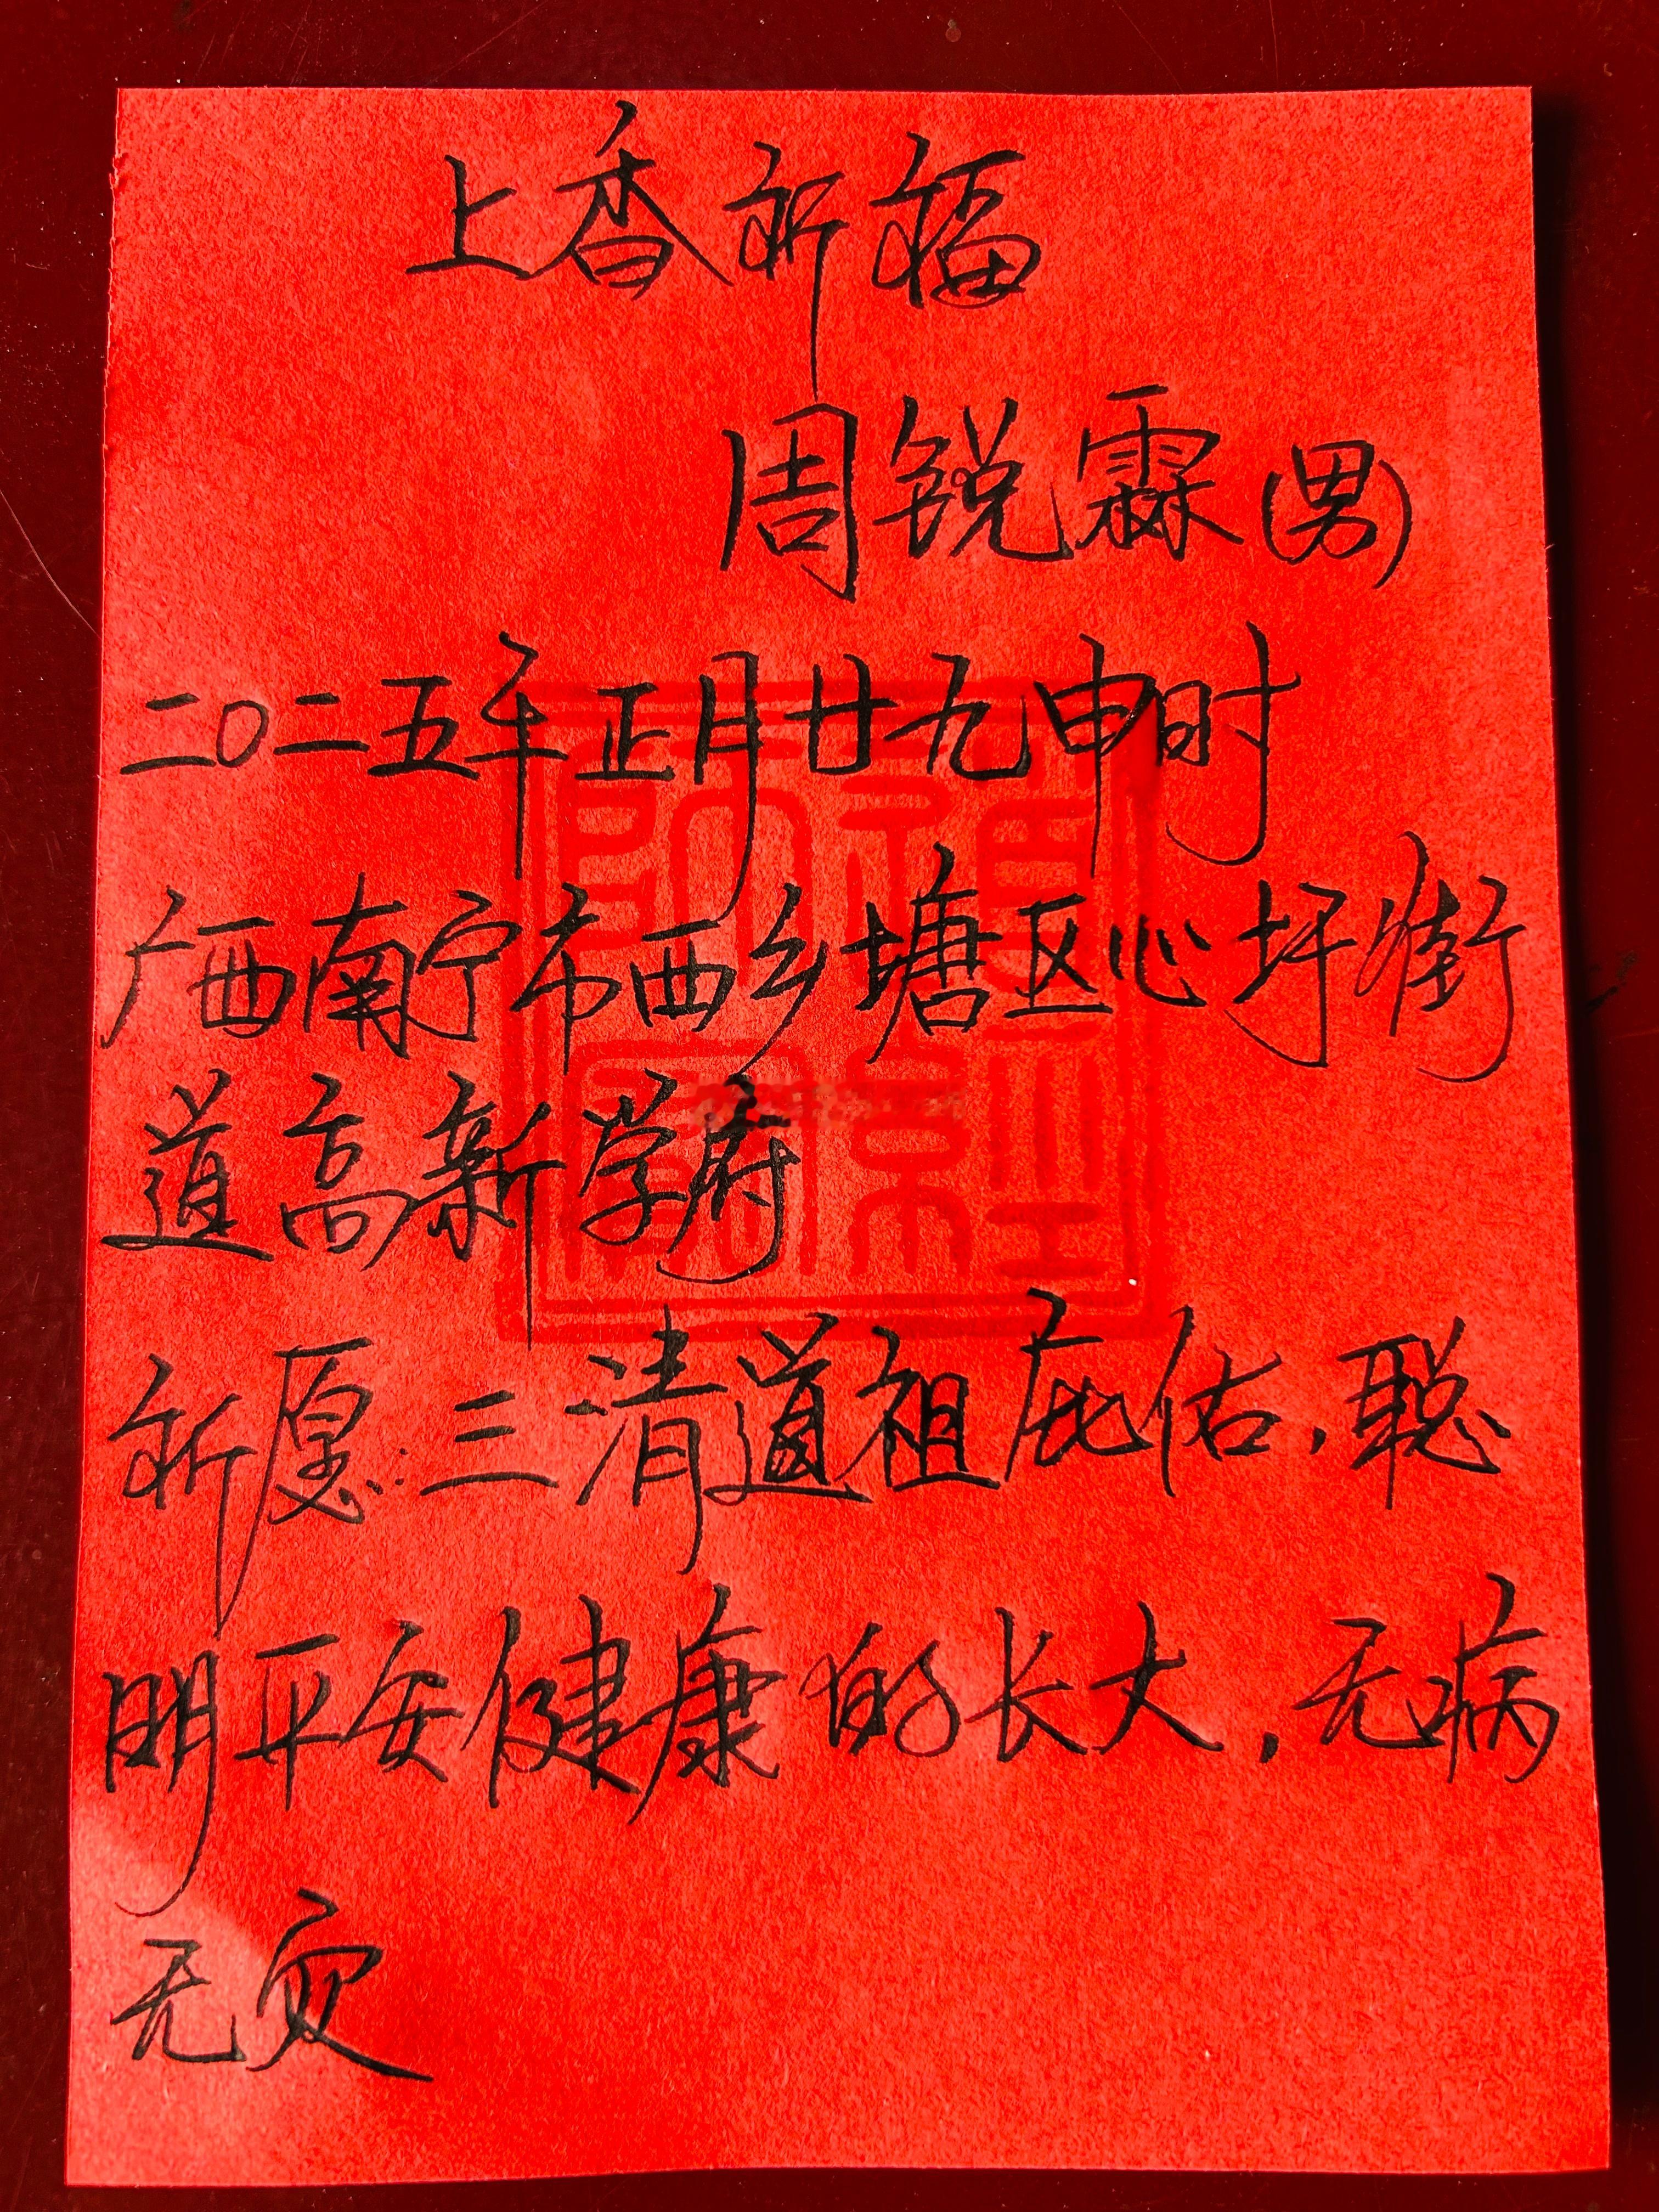 上香祈福
周锐霖(男)
二〇二五年正月廿九申时
广西南宁市西乡塘区心圩街
道高新学府
祈愿：三清道祖庇佑，聪
明平安健康的长大，无病
无灾